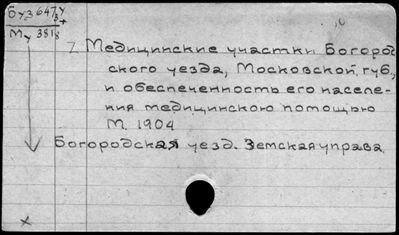 Му 381/8
Медицинские участки Богород
ского уезда, Московской, губ.,
и обеспеченность его населе-
ния медицинскою помощью
М. 1904
Богородская уезд. Земская управа